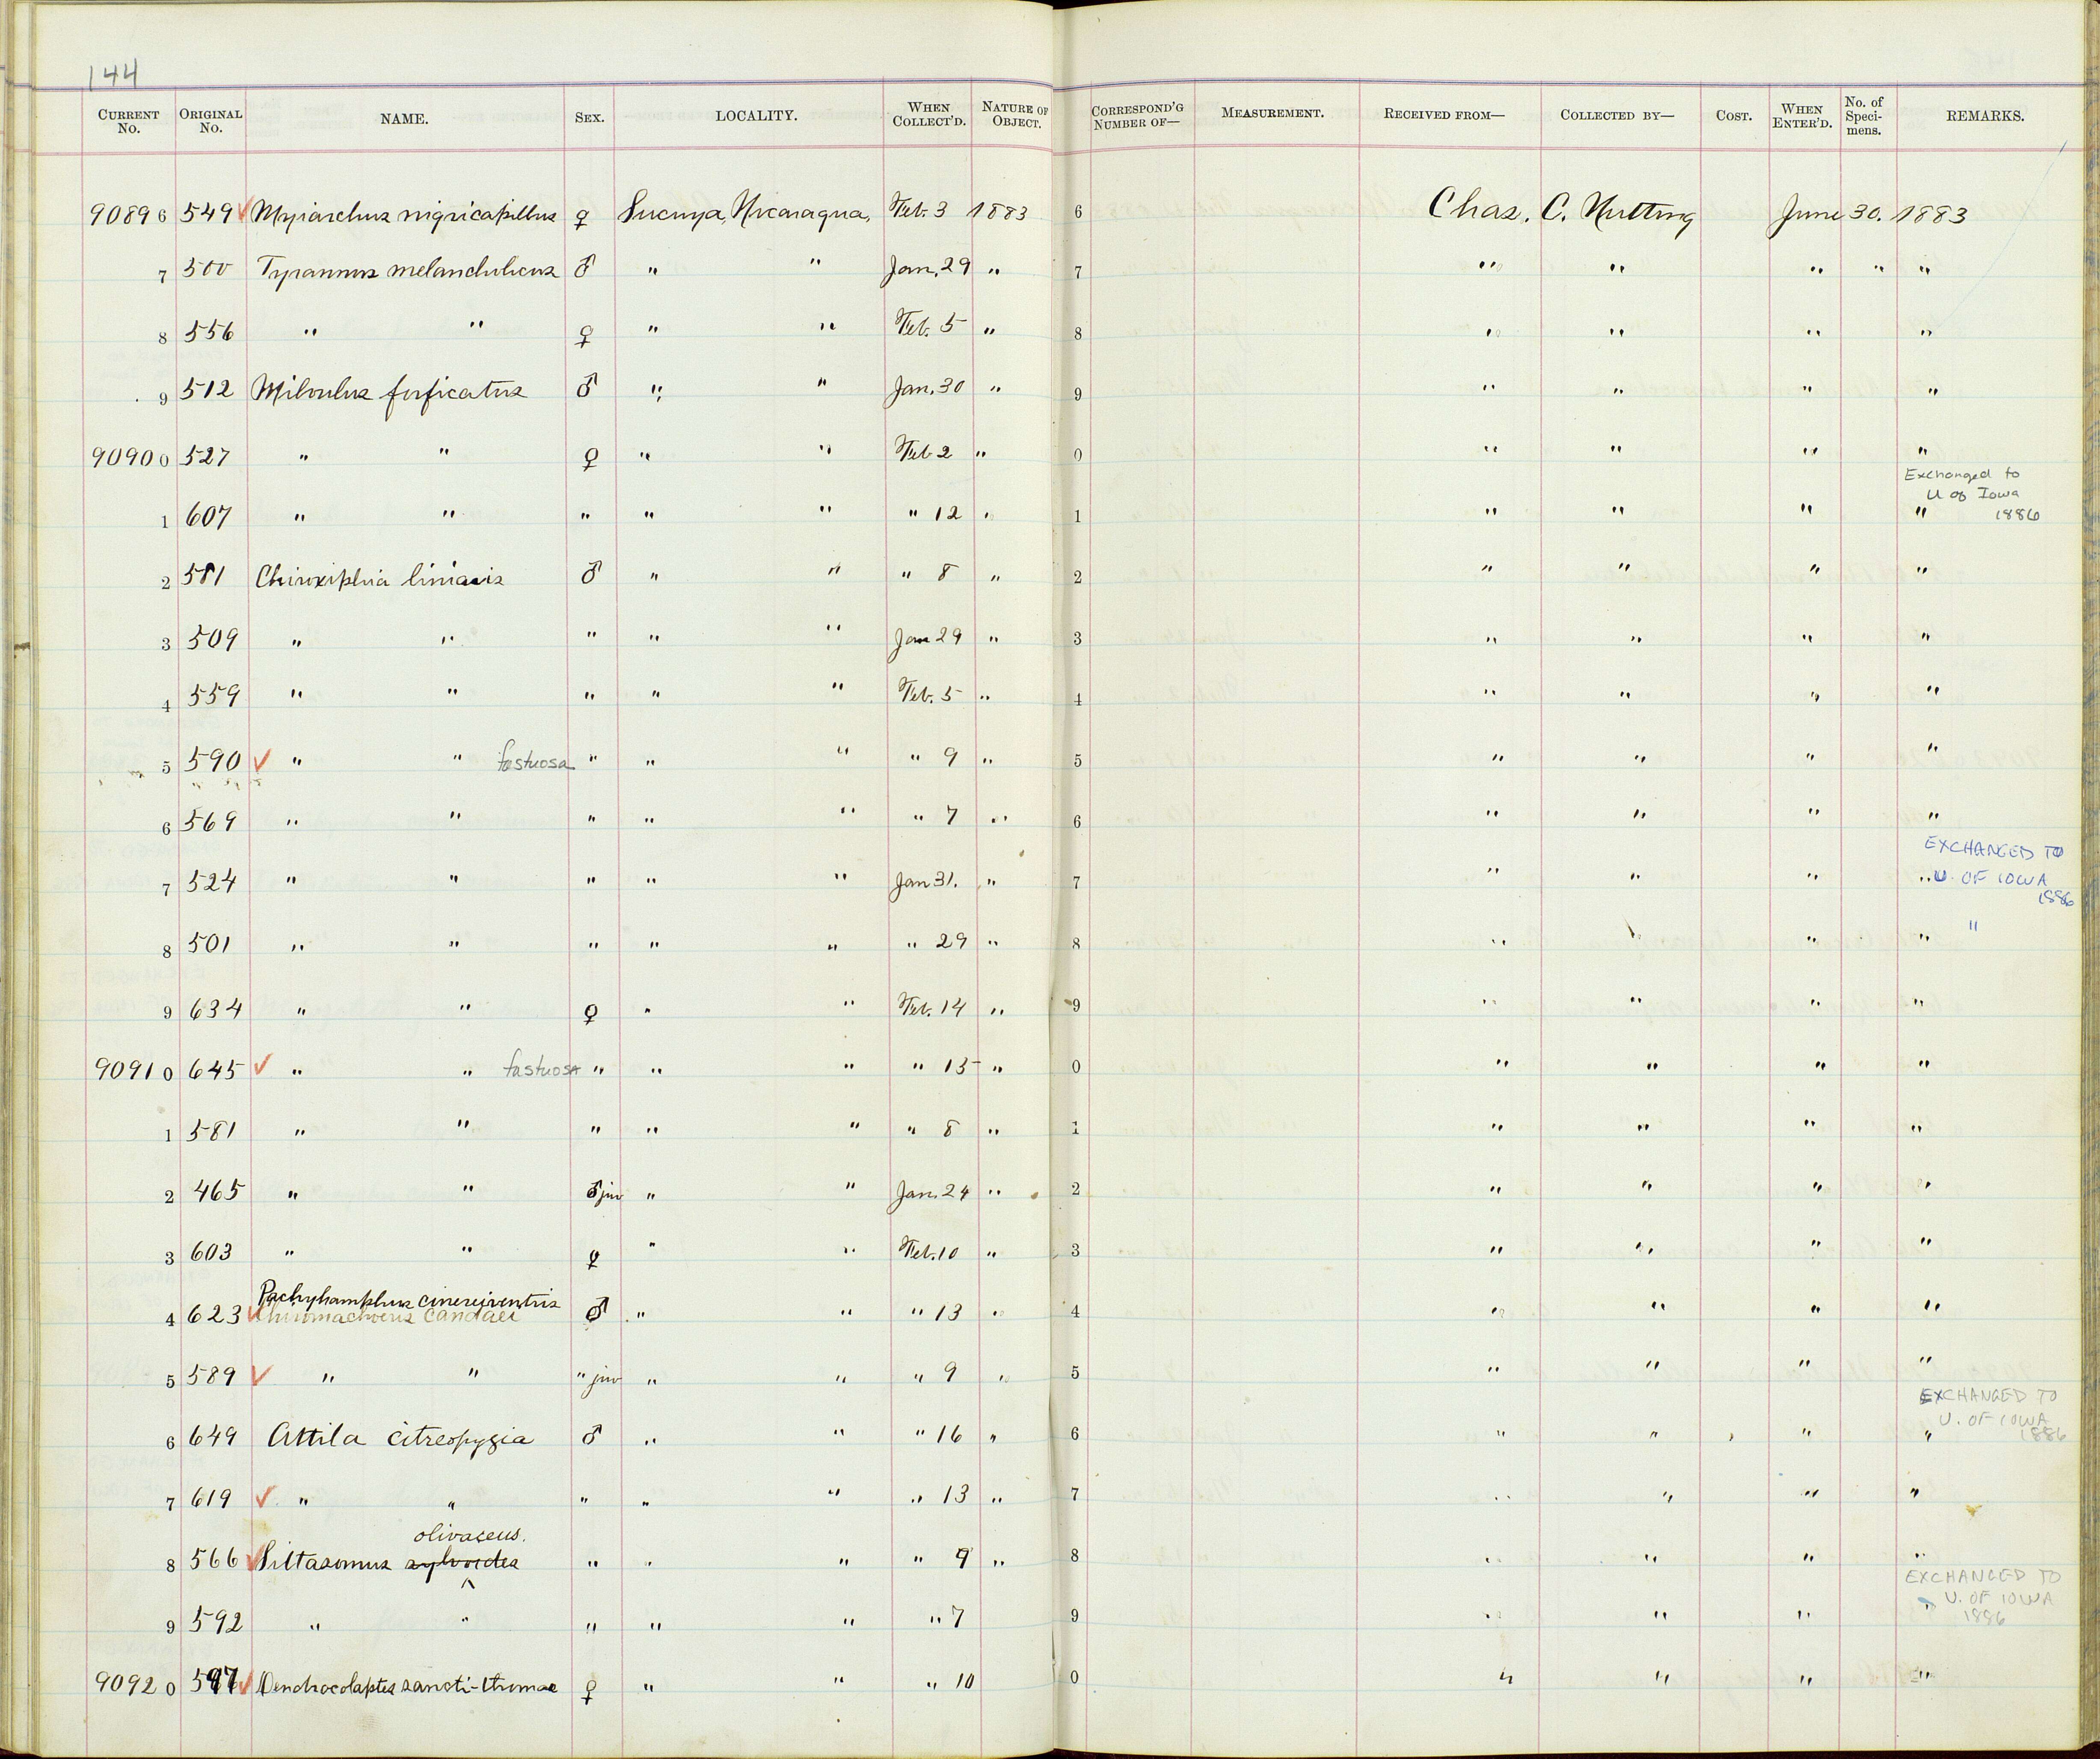 144
CURRENT No. ORIGINAL No. NAME. SEX. LOCALITY. WHEN COLLECT'D. NATURE OF OBJECT. CORRESPOND'G NUMBER OF— MEASUREMENT. RECEIVED FROM— COLLECTED BY— COST. WHEN ENTER'D. No. of Specimens. REMARKS.
90896 549 ✓ Myiarchus nigricapillus ♀ Sucuya, Nicaragua, Feb. 3 1883 6 Chas. C. Nutting June 30. 1883
7 500 Tyrannus melancholicus ♂ " " Jan. 29 " 7 " " " " "
8 556 " " ♀ " " Feb. 5 " 8 " " " "
9 512 Milvulus forficatus ♂ " " Jan. 30 " 9 " " " "
90900 527 " " ♀ " " Feb 2 " 0 " " " "
Exchanged to
U of Iowa
1 607 " " " " " " 12 " 1 " " " " 1886
2 581 Chiroxiphia linearis ♂ " " " 8 " 2 " " " "
3 509 " " " " " Jan 29 " 3 " " " "
4 559 " " " " " Feb. 5 " 4 " " " "
5 590 ✓ " " fastuosa " " " " 9 " 5 " " " "
6 569 " " " " " " 7 " 6 " " " "
EXCHANGED TO
7 524 " " " " " Jan 31. " 7 " " " " U. OF IOWA
1886
8 501 " " " " " " 29 " 8 " " " " "
9 634 " " ♀ " " Feb. 14 " 9 " " " "
90910 645 ✓ " " fastuosa " " " " 15 " 0 " " " "
1 581 " " " " " " 8 " 1 " " " "
2 465 " " ♂ juv " " Jan. 24 " 2 " " " "
3 603 " " ♀ " " Feb. 10 " 3 " " " "
Pachyhamphus cinereiventris
4 623 ✓ Chiromachaeris candaei ♂ " " " 13 " 4 " " " "
5 589 ✓ " " " juv " " " 9 " 5 " " " "
EXCHANGED TO
U. OF IOWA
6 649 Attila citreopygia ♂ " " " 16 " 6 " " " " 1886
7 619 ✓ " " " " " " 13 " 7 " " " "
olivaceus.
8 566 ✓ Sittasomus sylvoides " " " " 9 " 8 " " " "
EXCHANGED TO
U. OF IOWA
9 592 " " " " " " 7 9 " " " " 1886
90920 597 ✓ Dendrocolaptes sancti-thomae ♀ " " " 10 0 " " " "